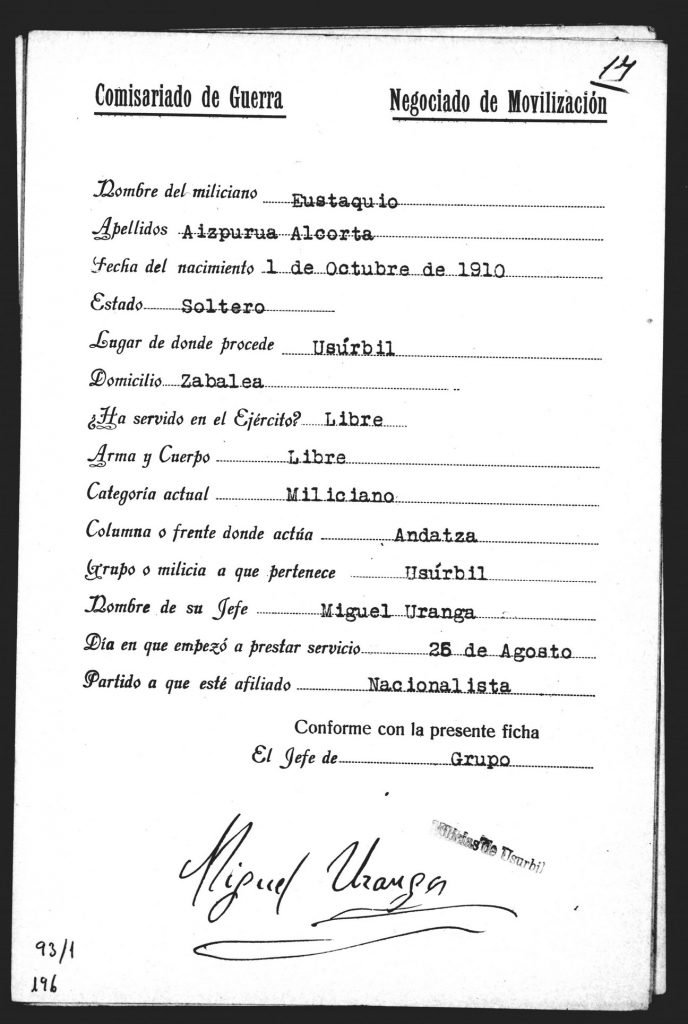 17
Comisariado de Guerra
Negociado de Movilización
Nombre del miliciano Eustaquio
Apellidos Aizpurua Alcorta
Fecha del nacimiento 1 de Octubre de 1910
Estado Soltero
Lugar de donde procede Usúrbil
Domicilio Zabalea
¿Ha servido en el Ejército? Libre
Arma y Cuerpo Libre
Categoría actual Miliciano
Columna o frente donde actúa Andatza
Grupo o milicia a que pertenece Usúrbil
Nombre de su Jefe Miguel Uranga
Día en que empezó a prestar servicio 25 de Agosto
Partido a que esté afiliado Nacionalista
Conforme con la presente ficha
El Jefe de Grupo
Milicias de Usurbil
Miguel Uranga
93/1
196